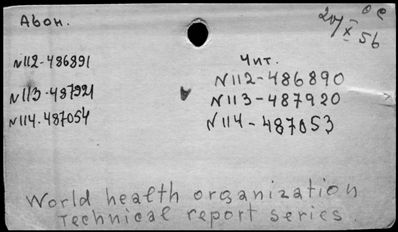 Абон.
24/X 56
Чит.
N112-486891
N112-486890
N113-487921
N113-487920
N114-487054
N114-487053
World health organization
Technical report series.